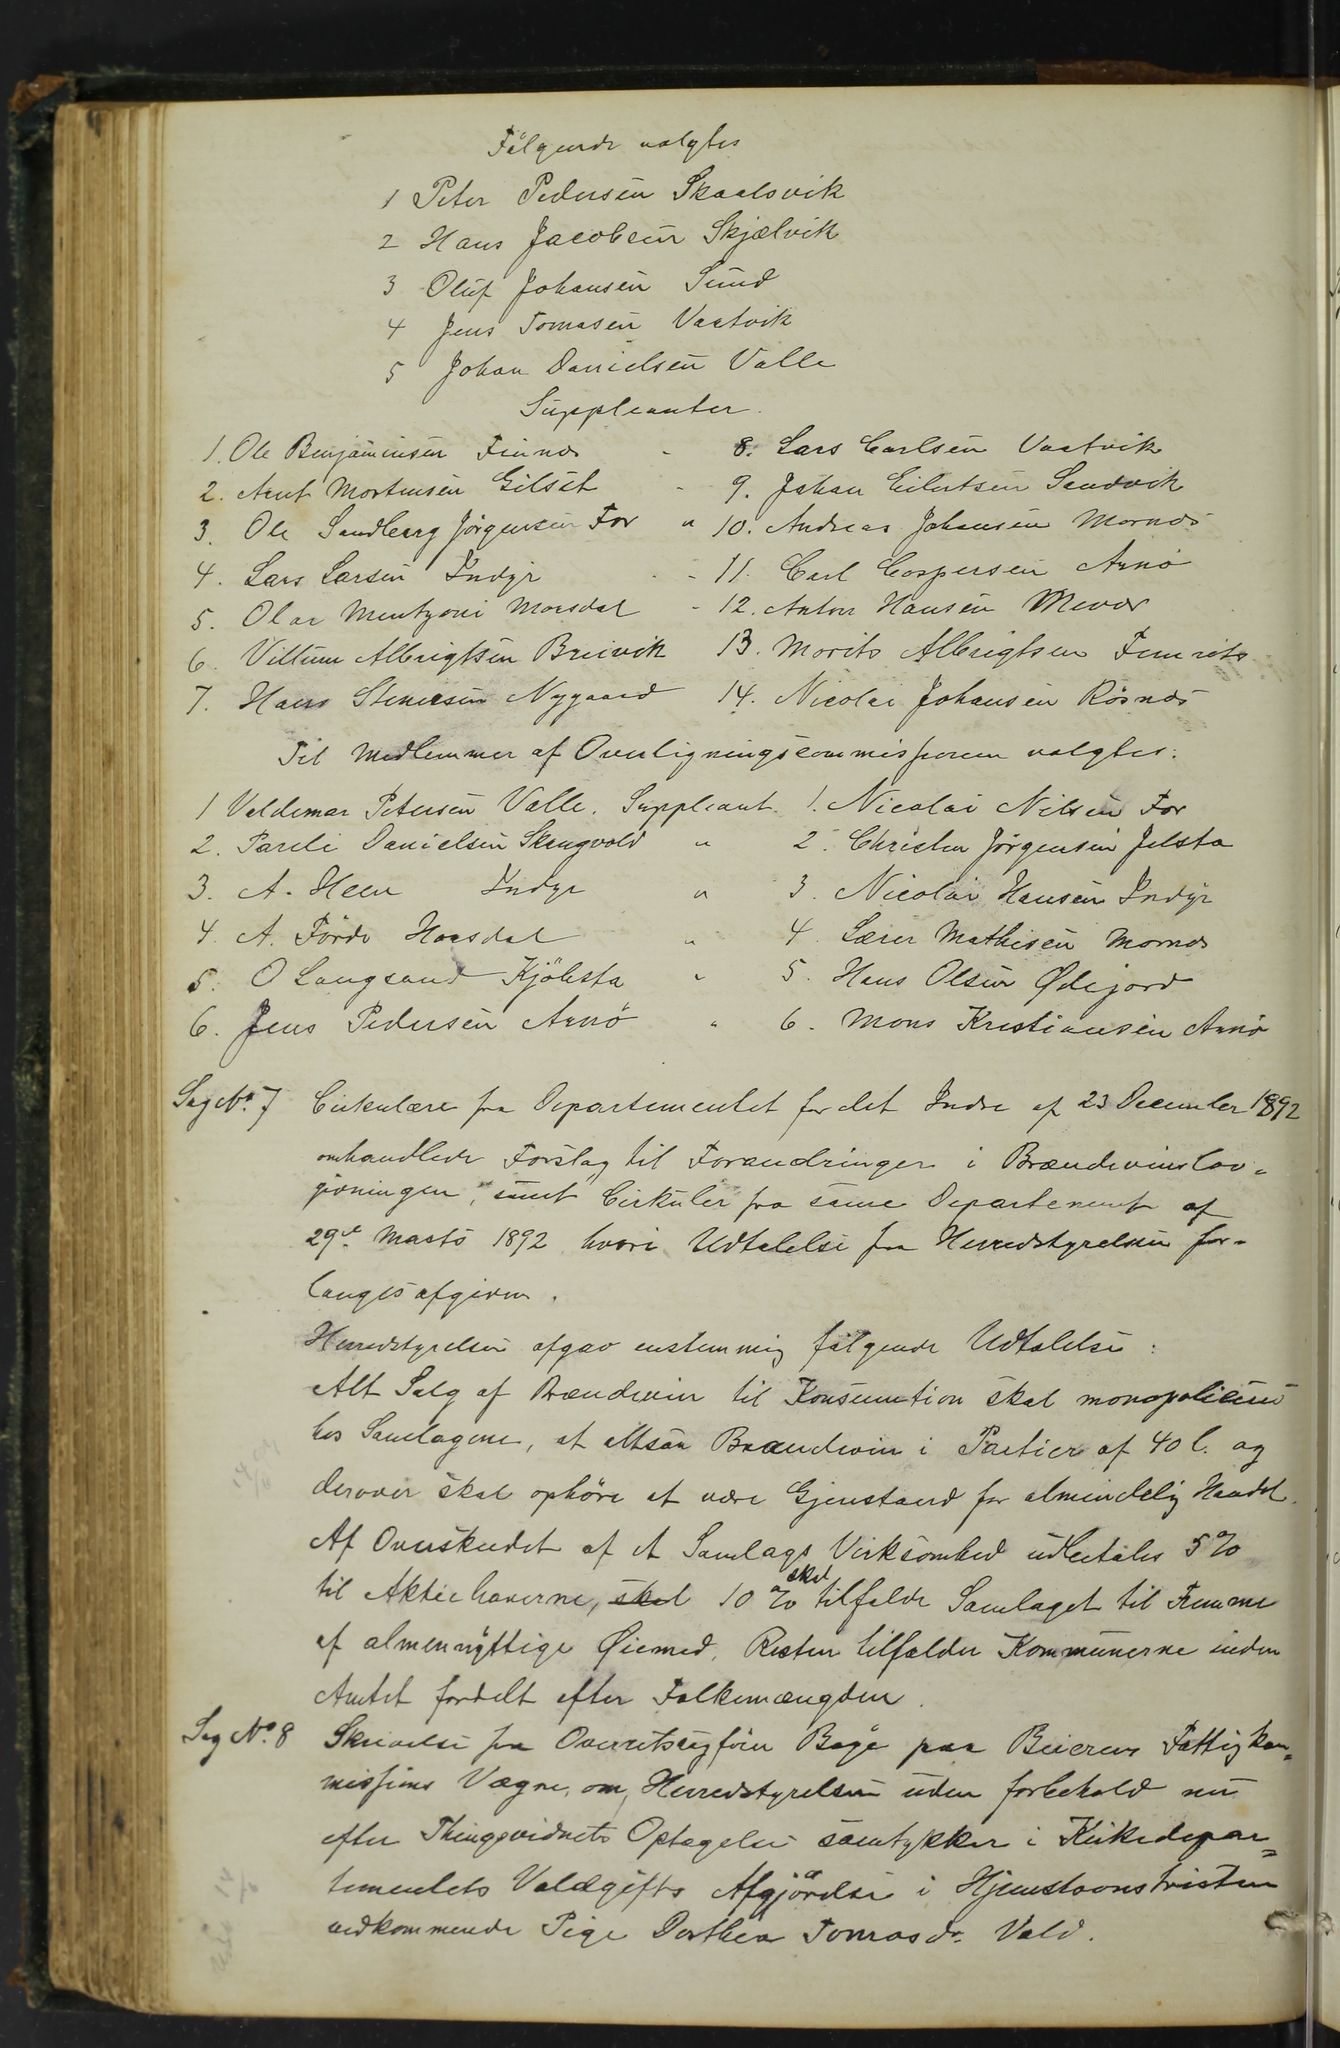 Følgende valgtes
1 Peter Pedersen Skaalsvik
2 Hans Jacobsen Skjælvik
3 Oluf Johansen Sund
4 Jens Tomasen Vaatvik
5 Johan Danielsen Valle
Suppleanter.
1. Ole Benjaminsen Finnes - 8. Lars Carlsen Vaatvik
2. Arnt Mortensen Gilset - 9. Johan Eilertsen Sandvik
3. Ole Sandberg Jørgensen For " 10. Andreas Johansen Mornes
4. Lars Larsen Indyr - 11. Carl Caspersen Arnø
5. Olav Mentzoni Morsdal - 12. Anton Hansen Mevær
6. Villum Albrigtsen Breivik 13. Morits Albrigtsen
7. Hans Stenersen Nygaard 14. Nicolai Johansen Røsnes
Til Medlemmer af Overligningscommissionen valgtes:
1 Valdemar Petersen Valle. Suppleant 1. Nicolai Nilsen For
2. Pareli Danielsen Skaugvold " 2. Christen Jørgensen Jelsta
3. A. Heen Indyr " 3. Nicolai Hansen Indyr
4. A. Førde Horsdal " 4. Mathisen Mornes
5. O Langsand Kjølsta " 5. Hans Olsen Ødejord
6. Jens Pedersen Arnø " 6. Mons Kristiansen Arnø
Sag No. 7 Cirkulære fra Departementet for det Indre af 23 December 1892
omhandlede Forslag til Forandringer i Brændevinslov-
givningen, samt Cirkulær fra samme Departement af
29de Marts 1892 hvori Udtalelse fra Herredstyrelsen for-
langes afgiven.
Herredstyrelsen afgav enstemmig følgende Udtalelse:
Alt Salg af Brændevin til Konsumtion skal monopoliseres
hos Samlagene, at altsaa Brændevin i Partier af 40 l. og
derover skal ophøre at være Gjenstand for almindelig Handel.
Af Overskudet af et Samlags Virksomhed udbetales 5 %
til Aktiehaverne, skal 10 % skal tilfalde Samlaget til Fremme
af almennyttige Øiemed. Resten tilfalder Kommunerne inden
Amtet fordelt efter Folkemængden.
Sag No. 8 Skrivelse fra Overretssagfører Bøge paa Beierens Fattigkom=
missions Vægne, om Herredstyrelsen uden forbehold nu
efter Thingsvidnets Optagelse samtykker i Kirkedepar=
tementets Voldgifts Afgjørelse i Hjemstavnstvisten
vedkommende Pige Dorthea Tomasdr. Vold.